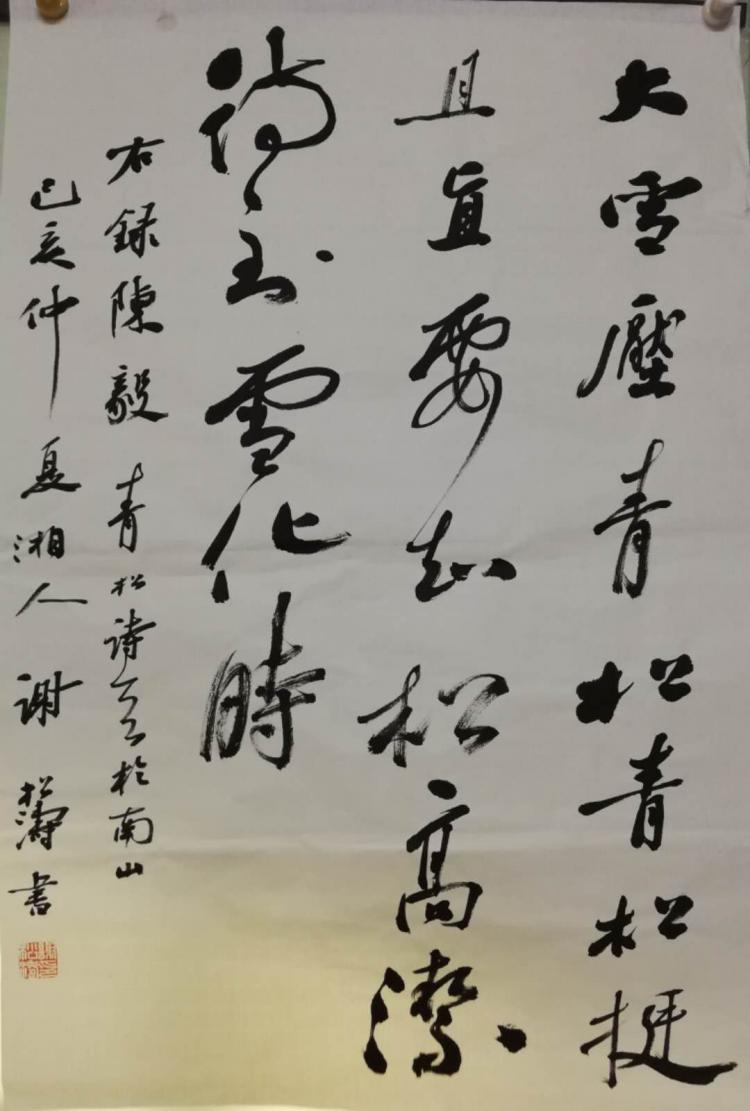 大雪壓青松青松挺
且直要知松高潔
待到雪化時
右録陳毅青松詩於南山
己亥仲夏湘人謝松濤書